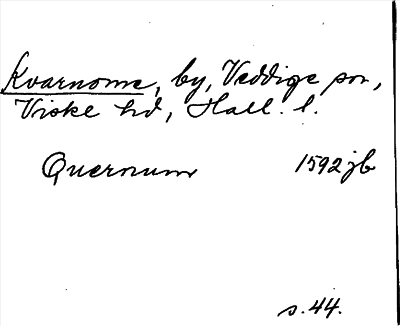 Kvarnome, by, Veddige sn,
Viske hd, Hall. l.
Quernum 1592 jb
s. 44.